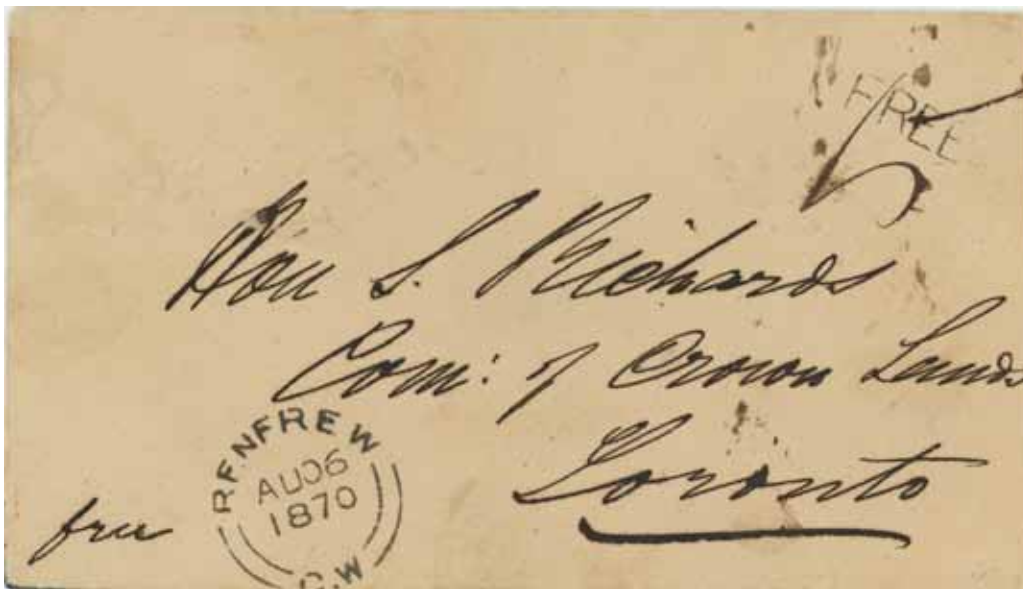 FREE
5
Hon S. Richards
Com: of Crown Lands
Toronto
free
RENFREW
AU 06
1870
C.W